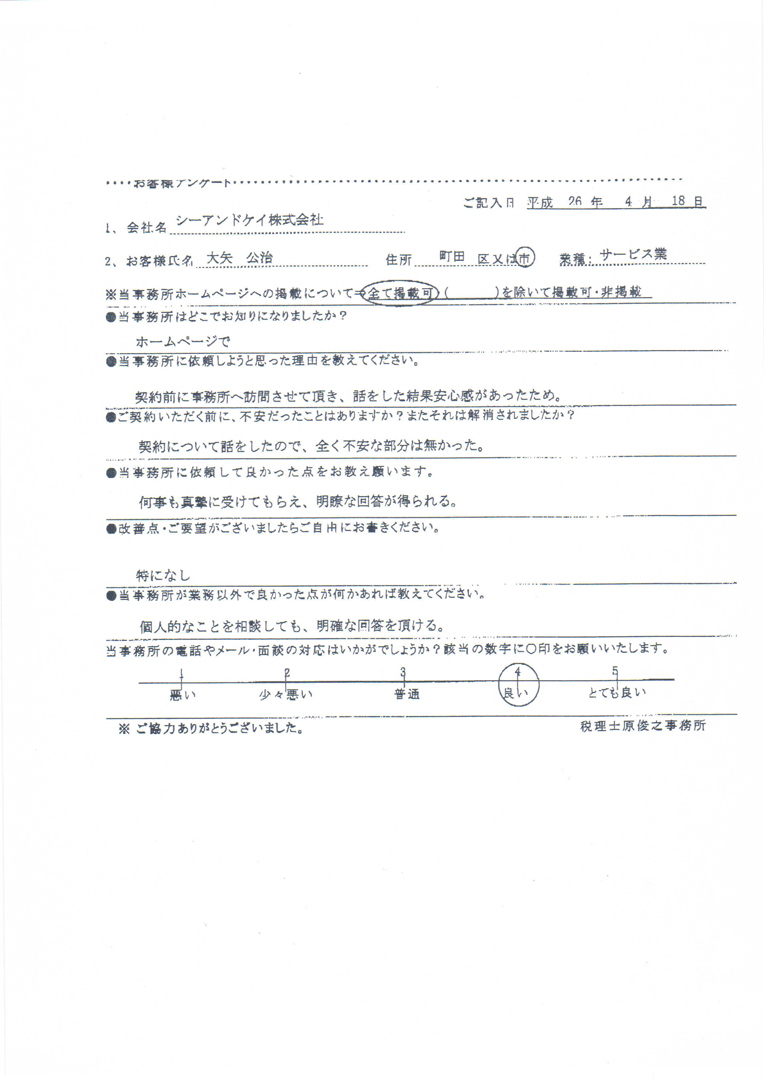 ････お客様アンケート････････････････････････････････････････････････････････････････
ご記入日 平成 26 年 4 月 18 日
1、会社名 シーアンドケイ株式会社
2、お客様氏名 大矢 公治 住所 町田 区又は市 業種: サービス業
※当事務所ホームページへの掲載について⇒全て掲載可・( )を除いて掲載可・非掲載
●当事務所はどこでお知りになりましたか?
ホームページで
●当事務所に依頼しようと思った理由を教えてください。
契約前に事務所へ訪問させて頂き、話をした結果安心感があったため。
●ご契約いただく前に、不安だったことはありますか?またそれは解消されましたか?
契約について話をしたので、全く不安な部分は無かった。
●当事務所に依頼して良かった点をお教え願います。
何事も真摯に受けてもらえ、明瞭な回答が得られる。
●改善点・ご要望がございましたらご自由にお書きください。
特になし
●当事務所が業務以外で良かった点が何かあれば教えてください。
個人的なことを相談しても、明確な回答を頂ける。
当事務所の電話やメール・面談の対応はいかがでしょうか?該当の数字に〇印をお願いいたします。
1 2 3 4 5
悪い 少々悪い 普通 良い とても良い
※ ご協力ありがとうございました。 税理士原俊之事務所